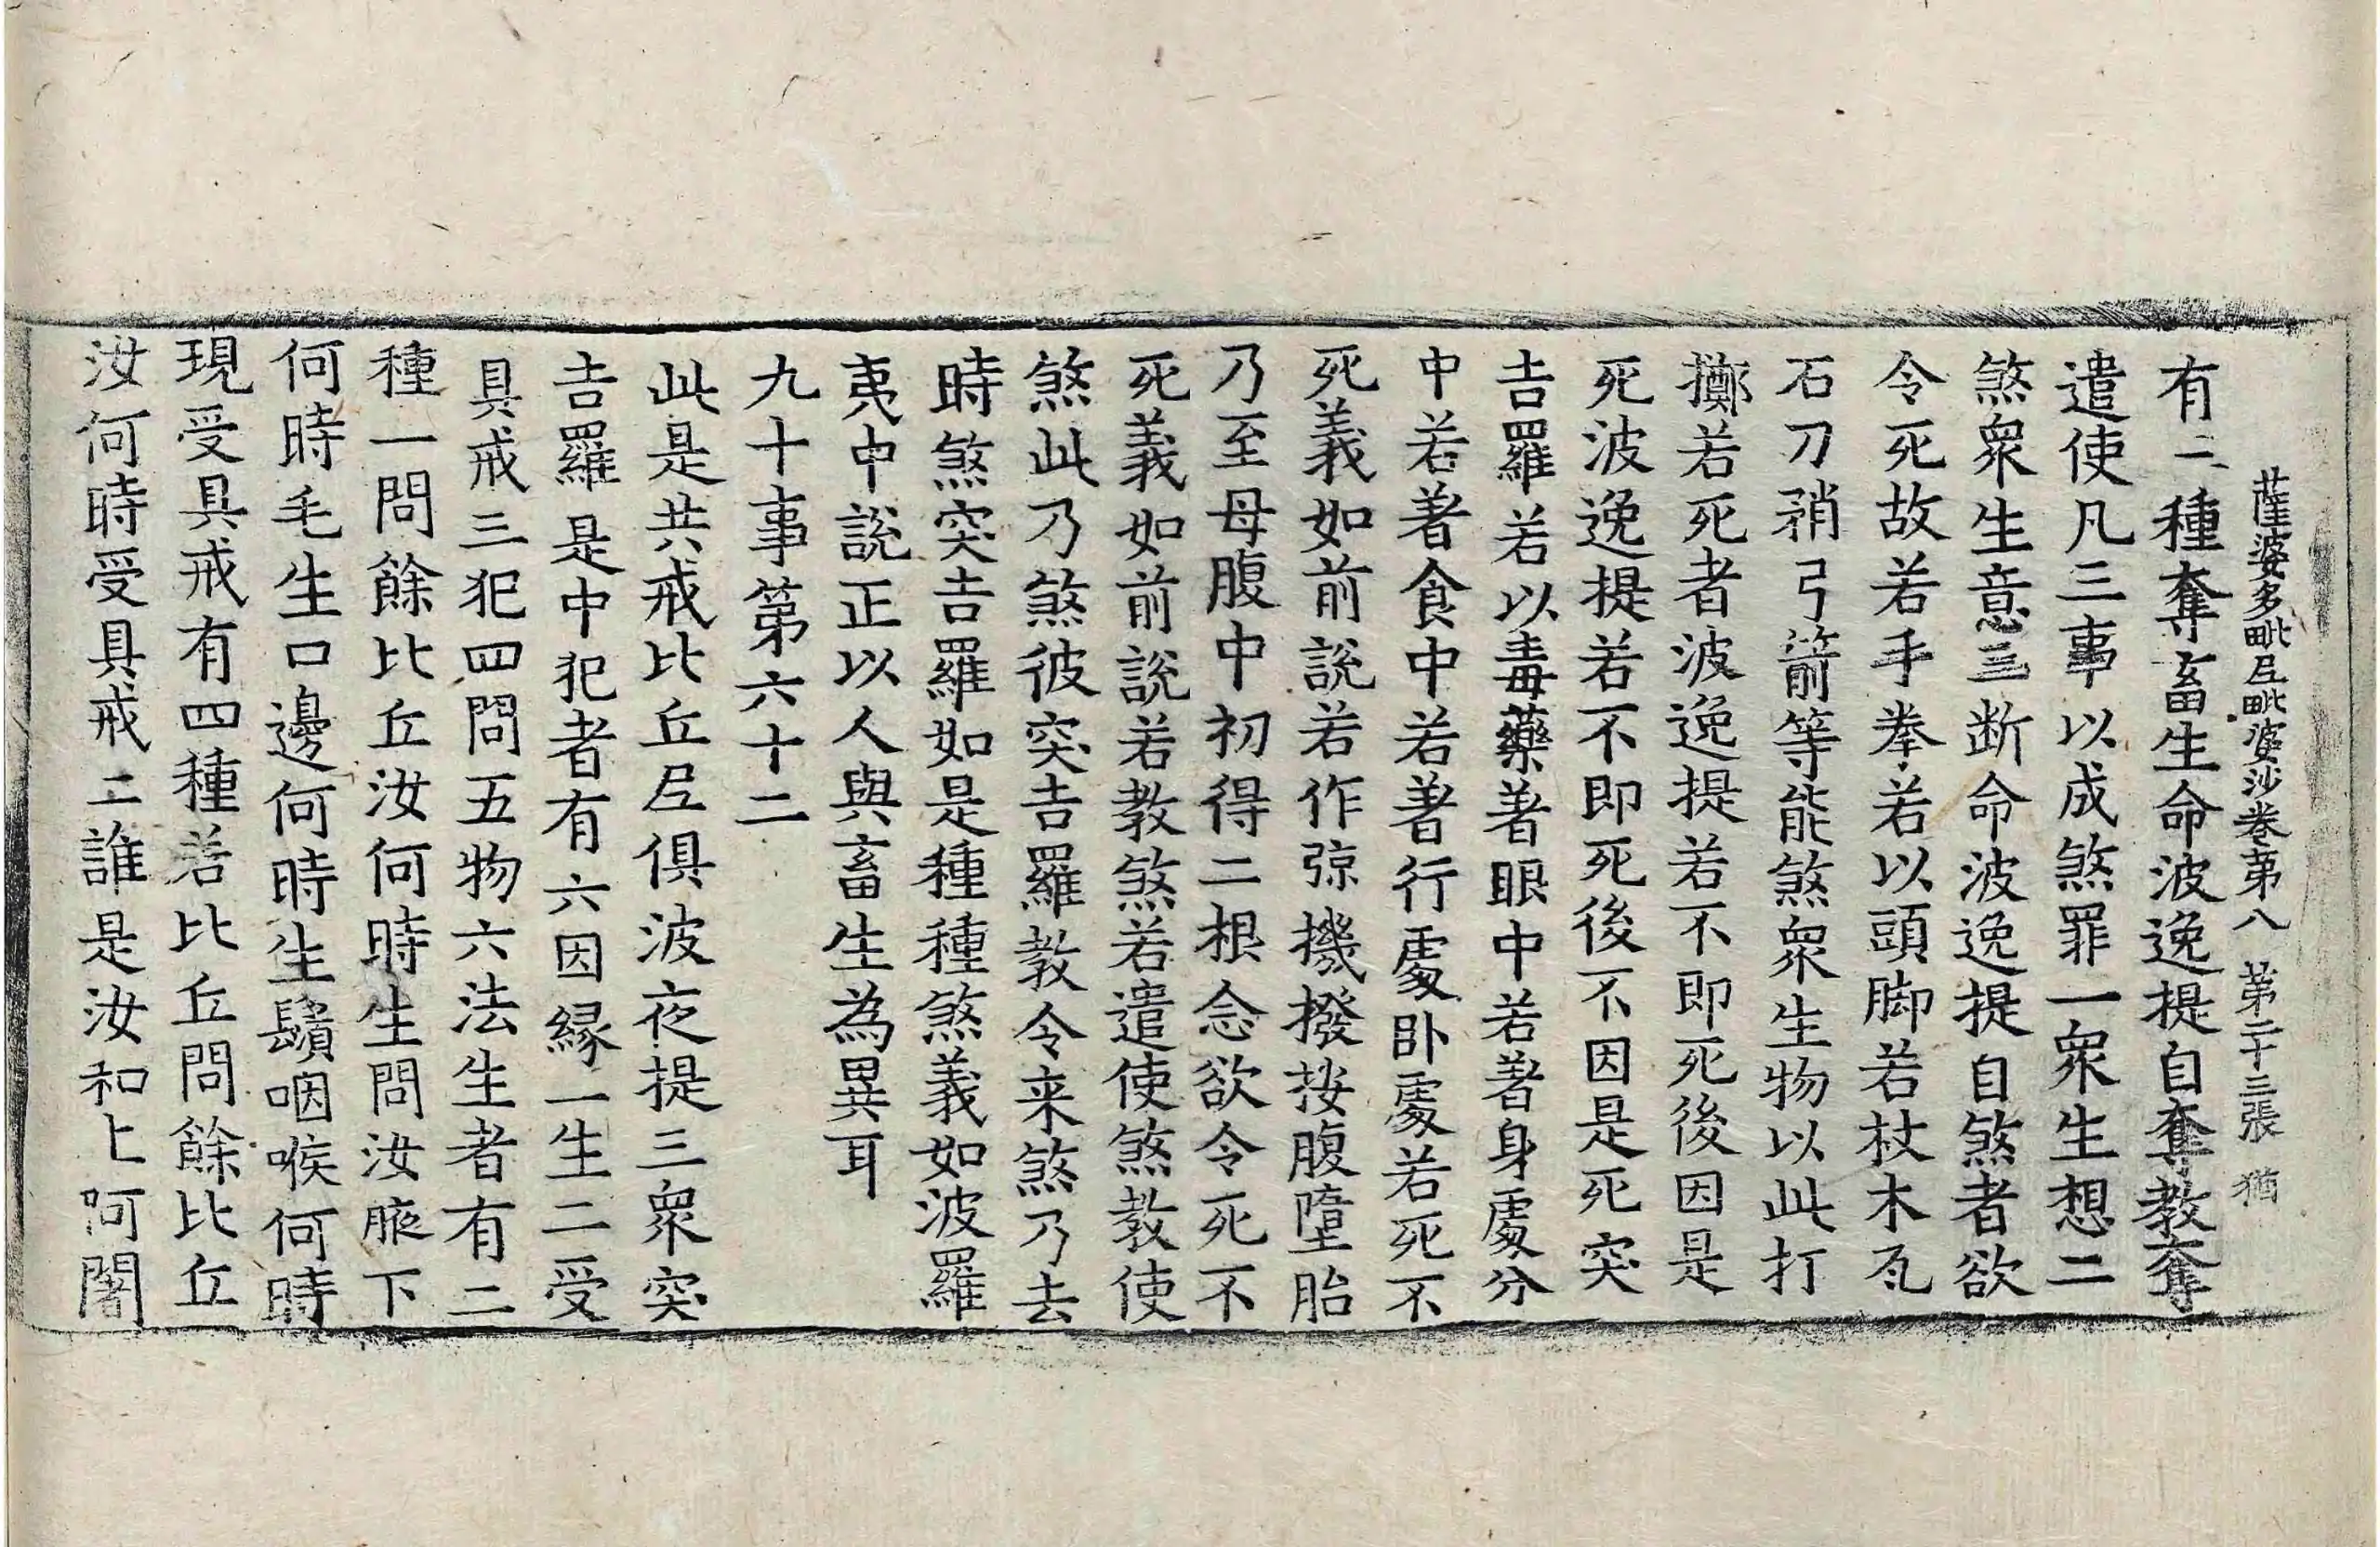 薩婆多毗尼毗婆沙卷第八 第二十三張 猶
有二種奪畜生命波逸提自奪教奪
遣使凡三事以成煞罪一衆生想二
煞衆生意三断命波逸提自煞者欲
令死故若手拳若以頭脚若杖木瓦
石刀矟弓箭等能煞衆生物以此打
擲若死者波逸提若不即死後因是
死波逸提若不即死後不因是死突
吉羅若以毒藥著眼中若著身處分
中若著食中若著行處卧處若死不
死義如前說若作弶機撥按腹墮胎
乃至母腹中初得二根念欲令死不
死義如前說若教煞若遣使煞教使
煞此乃煞彼突吉羅教令来煞乃去
時煞突吉羅如是種種煞義如波羅
夷中說正以人與畜生為異耳
九十事第六十二
此是共戒比丘尼俱波夜提三衆突
吉羅是中犯者有六因緣一生二受
具戒三犯四問五物六法生者有二
種一問餘比丘汝何時生問汝腋下
何時毛生口邊何時生鬚咽喉何時
現受具戒有四種若比丘問餘比丘
汝何時受具戒二誰是汝和上阿闍